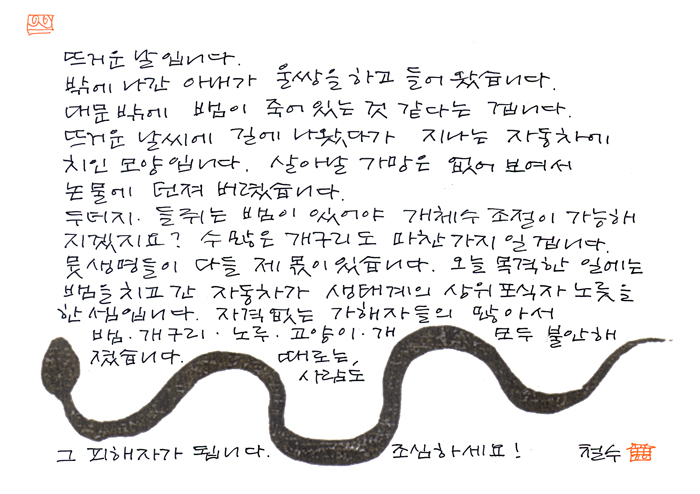 뜨거운 날입니다.
밖에 나간 아내가 울쌍을 하고 들어왔습니다.
대문밖에 뱀이 죽어있는 것 같다는 겝니다.
뜨거운 날씨에 길에 나왔다가 지나는 자동차에
치인 모양입니다. 살아날 가망은 없어 보여서
논물에 던져 버렸습니다.
두더지·들쥐는 뱀이 있어야 개체수 조절이 가능해
지겠지요? 수많은 개구리도 마찬가지일 겝니다.
뭇생명들이 다들 제 몫이 있습니다. 오늘 목격한 일에는
뱀을 치고 간 자동차가 생태계의 상위포식자 노릇을
한 셈입니다. 자격없는 가해자들의 많아서
뱀·개구리·노루·고양이·개 모두 불안해
졌습니다. 때로는,
사람도
그 피해자가 됩니다. 조심하세요! 철수